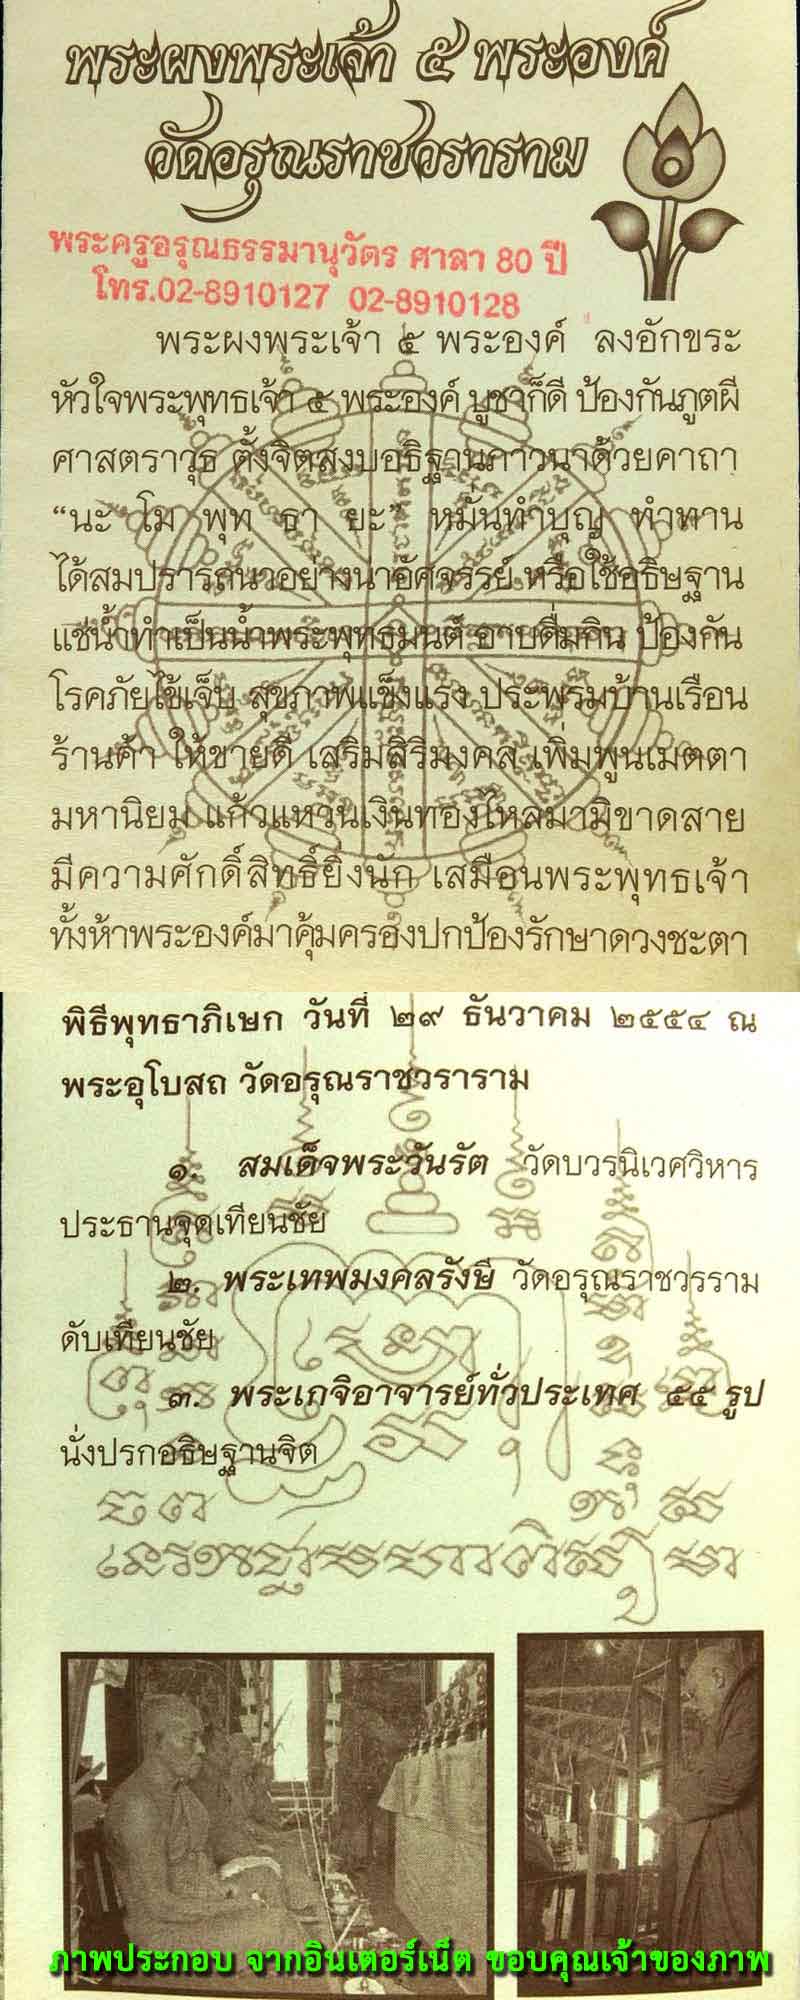 พระผงพระเจ้า ๕ พระองค์
วัดอรุณราชวราราม
พระครูอรุณธรรมานุวัตร ศาลา 80 ปี
โทร.02-8910127 02-8910128
พระผงพระเจ้า ๕ พระองค์ ลงอักขระ
หัวใจพระพุทธเจ้า ๕ พระองค์ บูชาก็ดี ป้องกันภูตผี
ศาสตราวุธ ตั้งจิตสงบอธิฐานภาวนาด้วยคาถา
“นะ โม พุท ธา ยะ” หมั่นทำบุญ ทำทาน
ได้สมปรารถนาอย่างน่าอัศจรรย์ หรือใช้อธิษฐาน
แช่น้ำทำเป็นน้ำพระพุทธมนต์ อาบดื่มกิน ป้องกัน
โรคภัยไข้เจ็บ สุขภาพแข็งแรง ประพรมบ้านเรือน
ร้านค้า ให้ขายดี เสริมสิริมงคล เพิ่มพูนเมตตา
มหานิยม แก้วแหวนเงินทองไหลมามิขาดสาย
มีความศักดิ์สิทธิ์ยิ่งนัก เสมือนพระพุทธเจ้า
ทั้งห้าพระองค์มาคุ้มครองปกป้องรักษาดวงชะตา
พิธีพุทธาภิเษก วันที่ ๒๙ ธันวาคม ๒๕๕๔ ณ
พระอุโบสถ วัดอรุณราชวราราม
๑. สมเด็จพระวันรัต วัดบวรนิเวศวิหาร
ประธานจุดเทียนชัย
๒. พระเทพมงคลรังษี วัดอรุณราชวรราม
ดับเทียนชัย
๓. พระเกจิอาจารย์ทั่วประเทศ ๕๕ รูป
นั่งปรกอธิษฐานจิต
ภาพประกอบ จากอินเตอร์เน็ต ขอบคุณเจ้าของภาพ